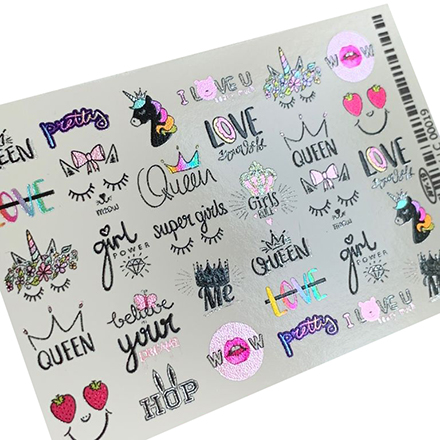 I LOVE U
WOW
pretty
QUEEN
LOVE
QUEEN
LOVE
Queen
Girls
meow
LOVE
super girls
girl
POWER
QUEEN
girl
POWER
Me
LOVE
believe
your
QUEEN
pretty
I LOVE U
WOW
HOP